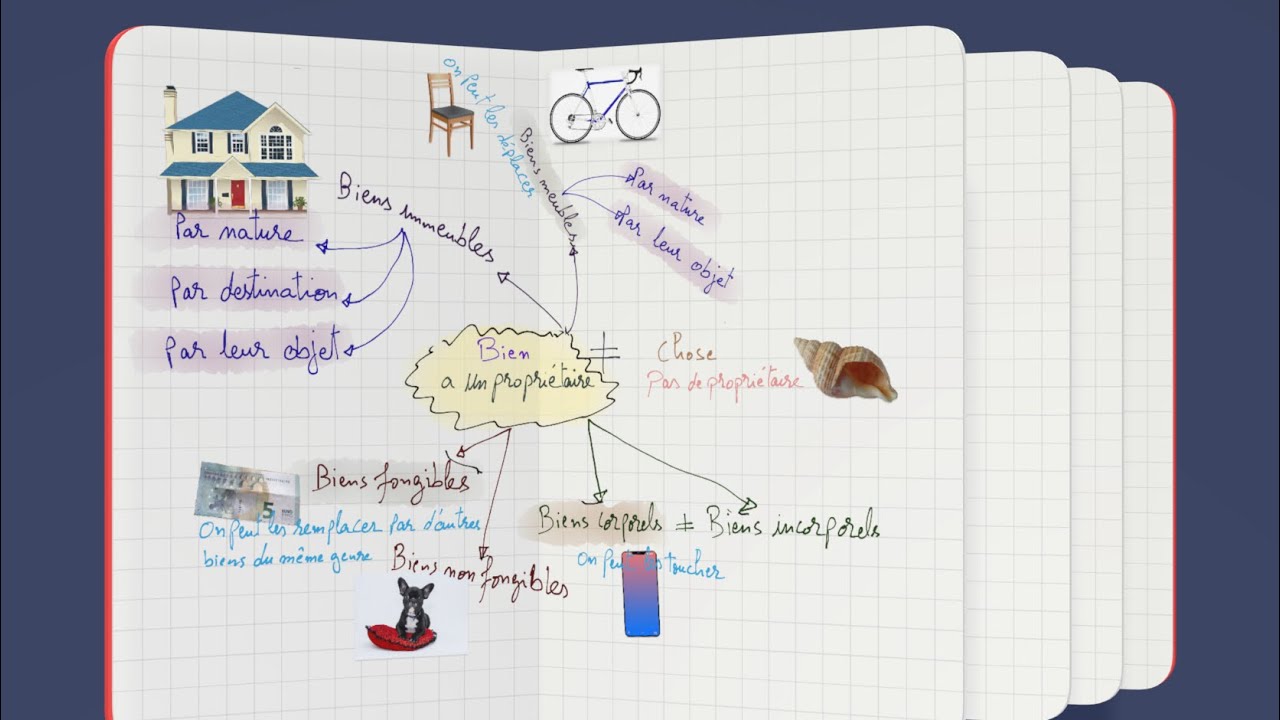 On peut les déplacer
Biens meubles
Par nature
Par leur objet
Biens immeubles
Par nature
Par destination
Par leur objet
Bien
a un propriétaire
≠
Chose
Pas de propriétaire
Biens fongibles
5
On peut les remplacer par d'autres
biens du même genre
Biens non fongibles
Biens corporels ≠ Biens incorporels
On peut les toucher